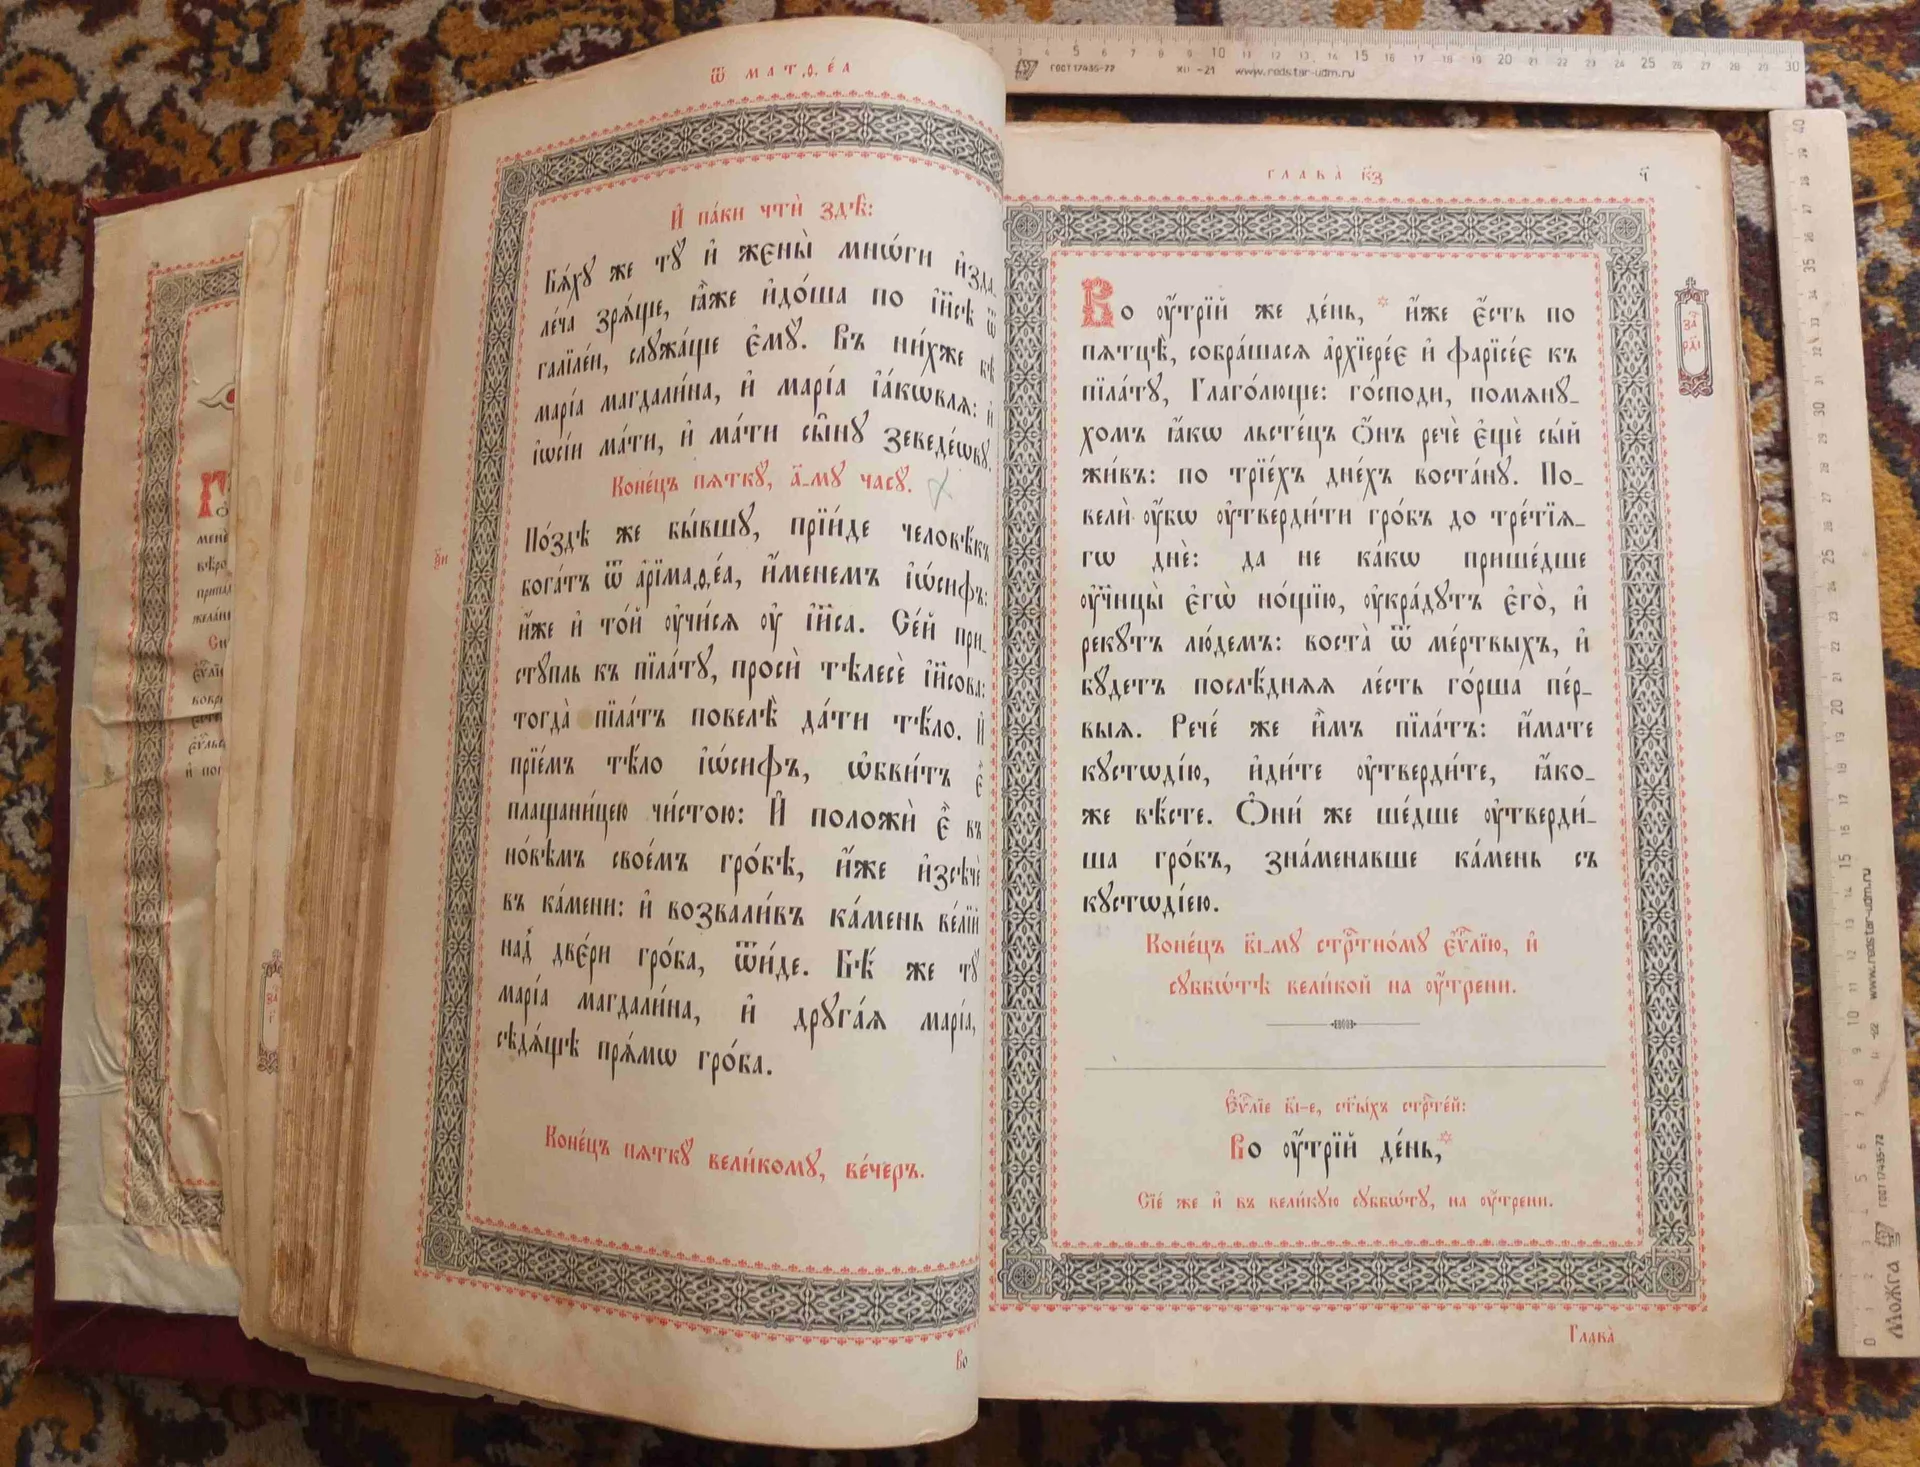 ѿ МАТѲЕ́А
И҆ па́ки чтѝ здѣ̀:
Бѧ́хꙋ же тꙋ̀ и҆ жєны̀ мнѡ́ги и҆зда
ле́ча зрѧ́ще, ꙗ҆̀же и҆до́ша по і҆и҃сѣ ѿ
галїле́и, слꙋжа́ще є҆мꙋ̀. Въ ни́хже бѣ̀
марі́а магдали́на, и҆ марі́а і҆а́кѡвлѧ: и҆
і҆ѡсі́и ма́ти, и҆ ма́ти сы̑нꙋ зеведе́ѡвꙋ.
Коне́цъ пѧткꙋ̀, а҃-мꙋ часꙋ̀.
По́здѣ же бы́вшꙋ, прїи́де человѣ́къ
бога́тъ ѿ а҆рїмаѳе́а, и҆́менемъ і҆ѡ́сифъ:
и҆́же и҆ то́й ᲂу҆чи́сѧ ᲂу҆ і҆и҃са. Се́й при_
стꙋпль къ пїла́тꙋ, просѝ тѣлесѐ і҆и҃сова:
тогда̀ пїла́тъ повелѣ̀ да́ти тѣ́ло. И҆
прїе́мъ тѣ́ло і҆ѡ́сифъ, ѡ҆бви́тъ є҆̀
плащани́цею чи́стою: И҆ положѝ є҆̀ въ
но́вѣмъ свое́мъ гро́бѣ, и҆́же и҆зсѣчѐ
въ ка́мени: и҆ возвали́въ ка́мень ве́лїй
над̾ две́ри гро́ба, ѿи́де. Бѣ́ же тꙋ̀
марі́а магдали́на, и҆ дрꙋга́ѧ марі́а,
сѣдѧ́щѣ прѧ́мѡ гро́ба.
Коне́цъ пѧткꙋ̀ вели́комꙋ, ве́черъ.
Во
ГЛАВА̀ к҃з
ч҃
Во ᲂу҆́трїй же де́нь, * и҆́же є҆́сть по
пѧтцѣ̀, собра́шасѧ а҆рхїере́є и҆ фарїсе́є къ
пїла́тꙋ, Глаго́люще: го́споди, помѧнꙋ_
хомъ ꙗ҆́кѡ льсте́цъ Ѻ҆́нъ речѐ є҆щѐ сы́й
жи́въ: по трїе́хъ дне́хъ воста́нꙋ. По_
велѝ ᲂу҆̀бѡ ᲂу҆тверди́ти гро́бъ до тре́тїѧ_
гѡ днѐ: да не ка́кѡ прише́дше
ᲂу҆чн҃цы̀ є҆гѡ̀ но́щїю, ᲂу҆кра́дꙋтъ є҆го̀, и҆
рекꙋ́тъ лю́демъ: воста̀ ѿ ме́ртвыхъ, и҆
бꙋ́детъ послѣ́днѧѧ ле́сть го́рша пе́р_
выѧ. Рече́ же и҆̀мъ пїла́тъ: и҆́мате
кꙋстѡді́ю, и҆ди́те ᲂу҆тверди́те, ꙗ҆́ко_
же вѣ́сте. Ѻ҆ни́ же ше́дше ᲂу҆тверди́_
ша гро́бъ, зна́менавше ка́мень съ
кꙋстѡді́ею.
за҃
рді
Коне́цъ в҃і-мꙋ стрⷭ҇тно́мꙋ є҆ѵⷢ҇лїю, и҆
сꙋббѡ́тѣ вели́кой на ᲂу҆́трени.
Є҆ѵⷢ҇лїе в҃і-е, ст҃ы́хъ стрⷭ҇те́й:
Во ᲂу҆́трїй де́нь, *
Сїе́ же и҆ въ вели́кꙋю сꙋббѡ́тꙋ, на ᲂу҆́трени.
Глава̀
ГОСТ 17435-72 XII -21 www.redstar-udm.ru
Можга ГОСТ 17435-72 www.redstar-udm.ru